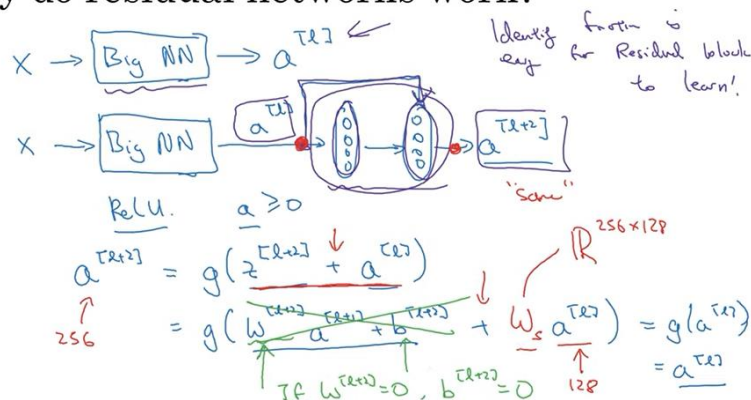 y do residual networks work?
X → Big NN → a^[l]
Identity function is
easy for Residual block
to learn!
X → Big NN → a^[l] → → a^[l+2]
"same"
ReLU. a ≥ 0
ℝ^256×128
a^[l+2] = g(z^[l+2] + a^[l])
256
= g(W^[l+2] a^[l+1] + b^[l+2] + W_s a^[l]) = g(a^[l])
= a^[l]
128
If W^[l+2]=0, b^[l+2]=0